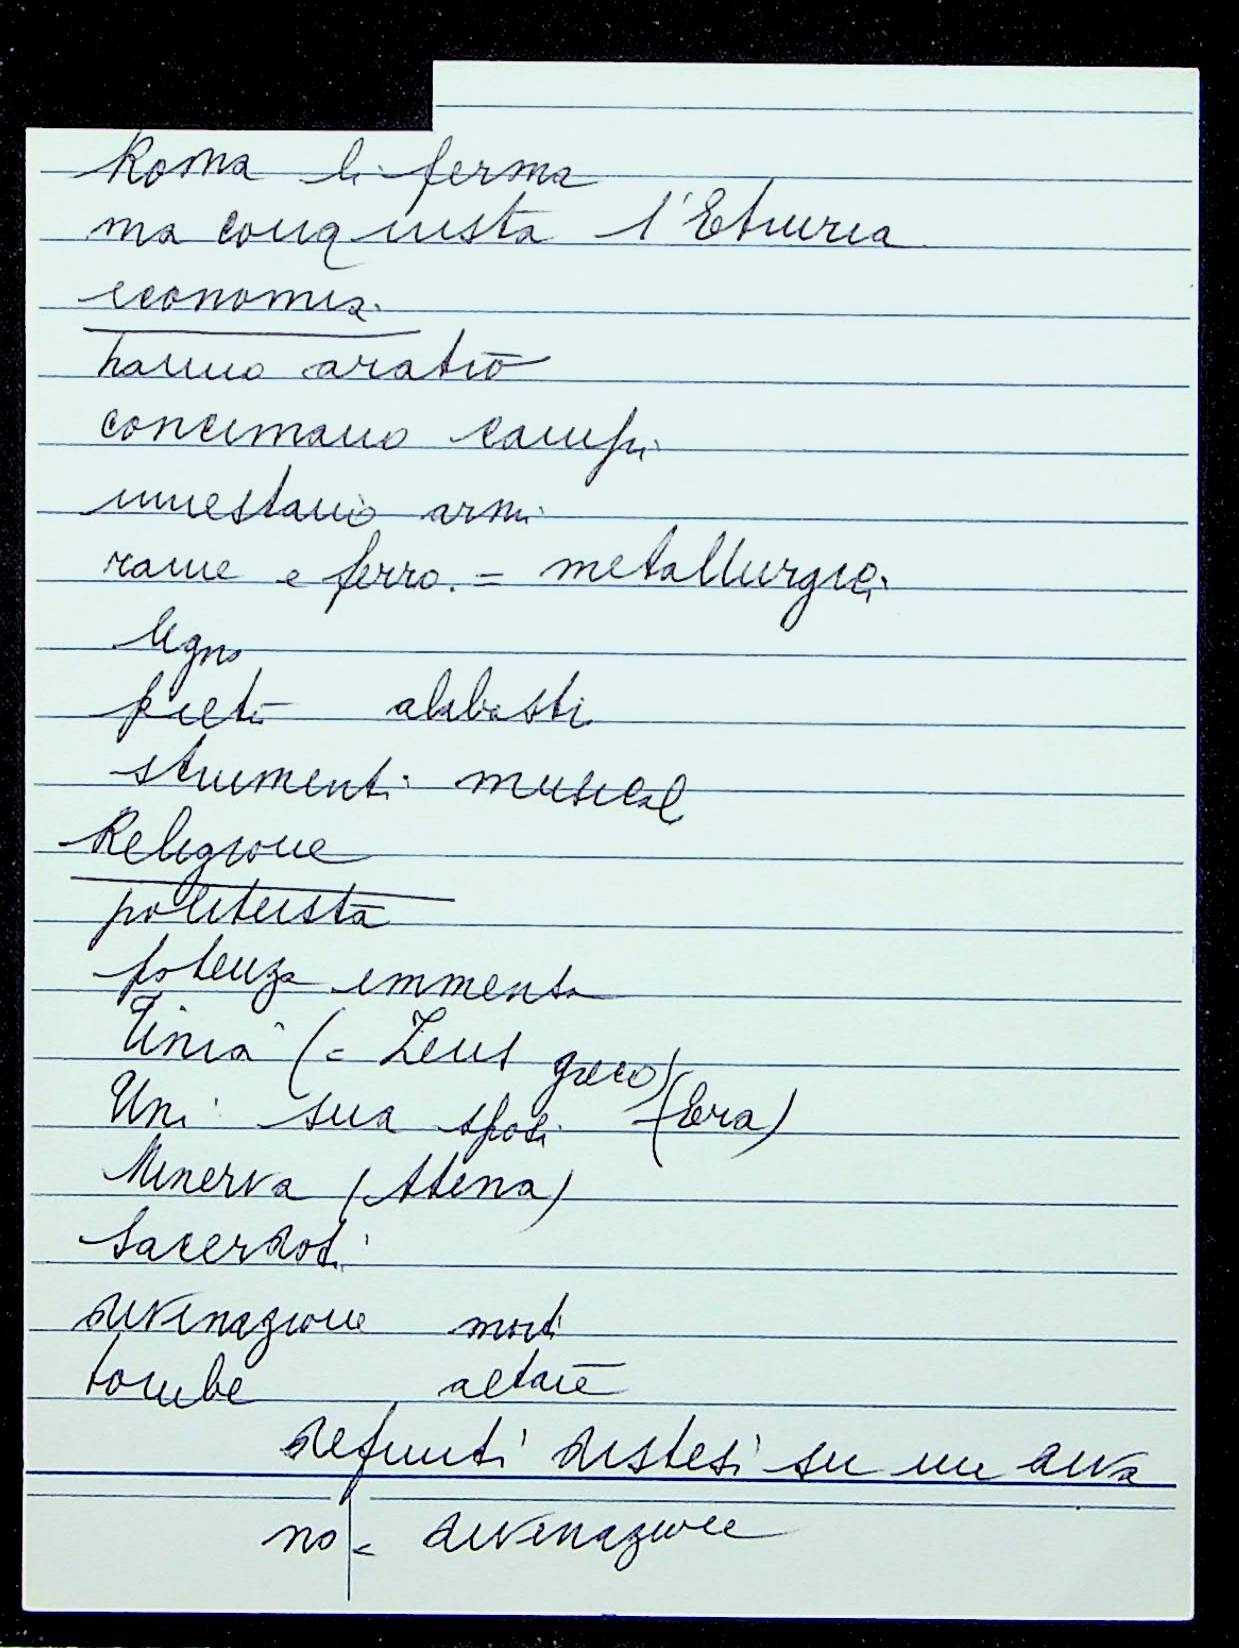 Roma li ferma
ma conquista l'Etruria
economia
hanno aratro
concimano campi
innestano armi
rame e ferro. = metallurgia
legno
pietra alabastri
strumenti musical
Religione
politeista
potenza immensa
Tinia (= Zeus greco)
Uni sua sposa (Era)
Minerva (Atena)
Sacerdoti
divinazione morti
tombe altare
defunti distesi su un diva
no = divinazione